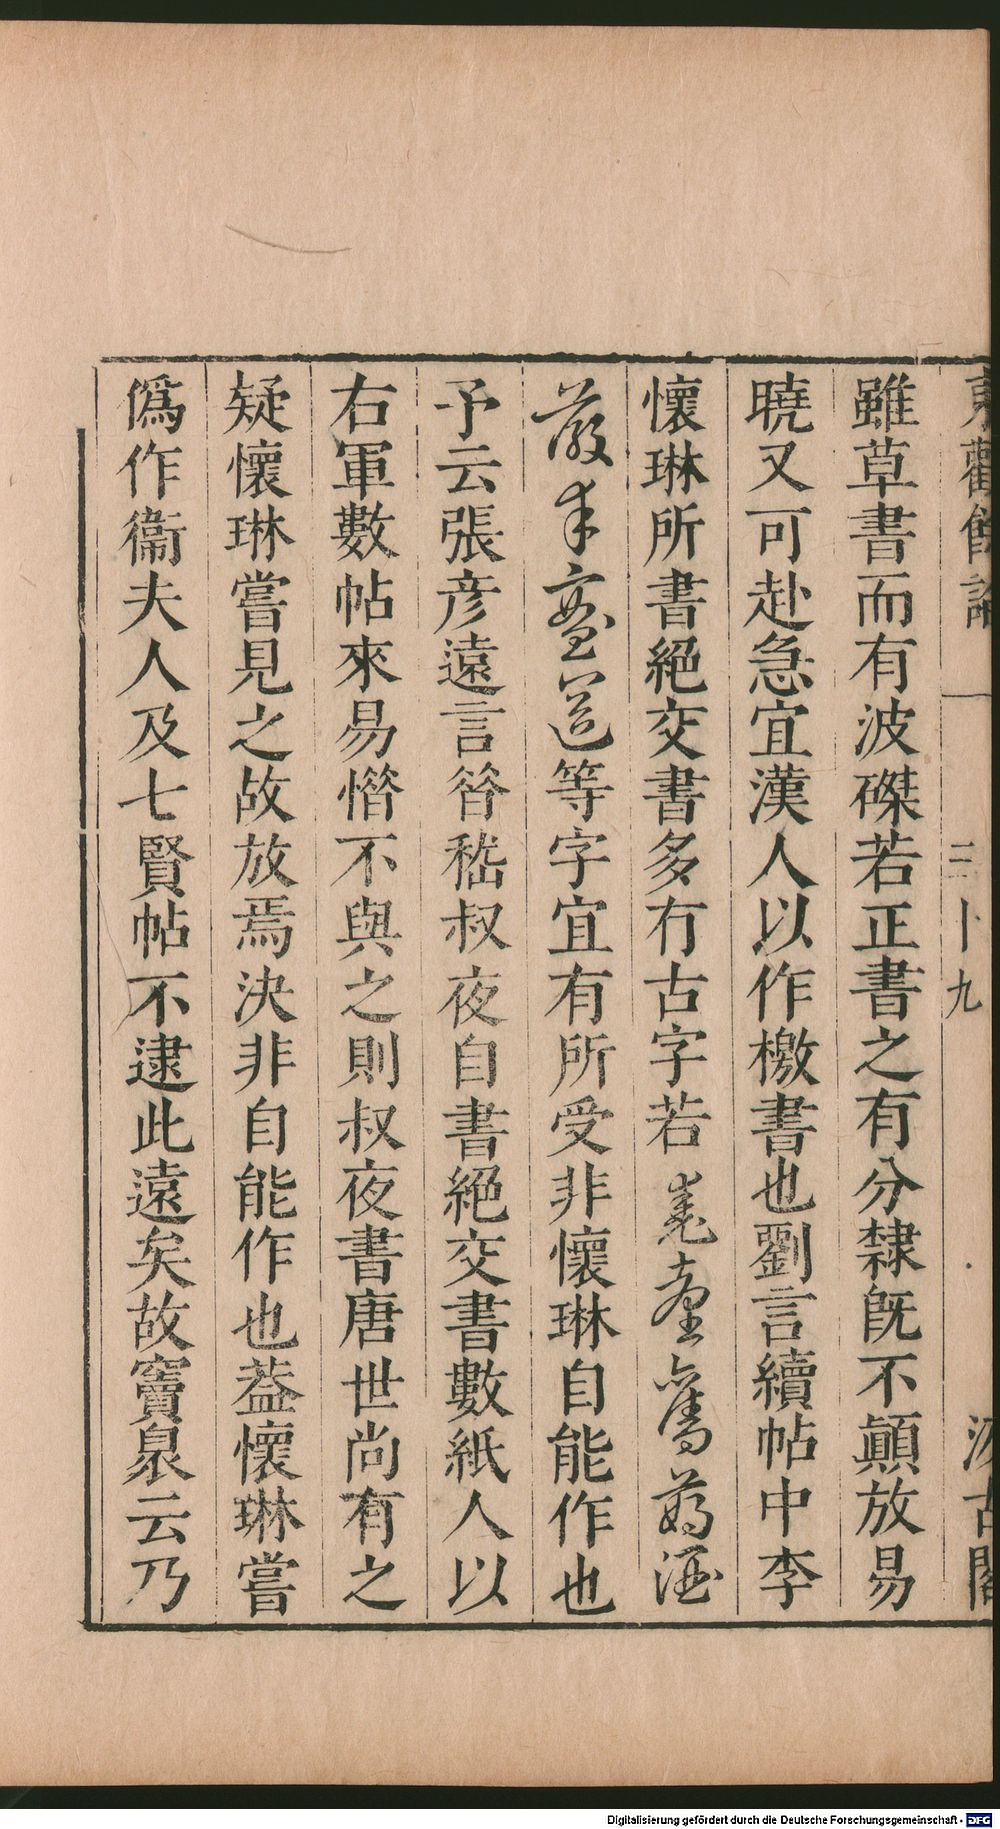 東觀餘論 三十九 汲古閣
雖草書而有波磔若正書之有分隸旣不顛放易
曉又可赴急宜漢人以作檄書也劉言續帖中李
懷琳所書絕交書多有古字若
等字宜有所受非懷琳自能作也
予云張彦遠言昝嵇叔夜自書絕交書數紙人以
右軍數帖來易惜不與之則叔夜書唐世尚有之
疑懷琳嘗見之故放焉決非自能作也葢懷琳嘗
僞作衞夫人及七賢帖不逮此遠矣故竇臮云乃
Digitalisierung gefördert durch die Deutsche Forschungsgemeinschaft - DFG